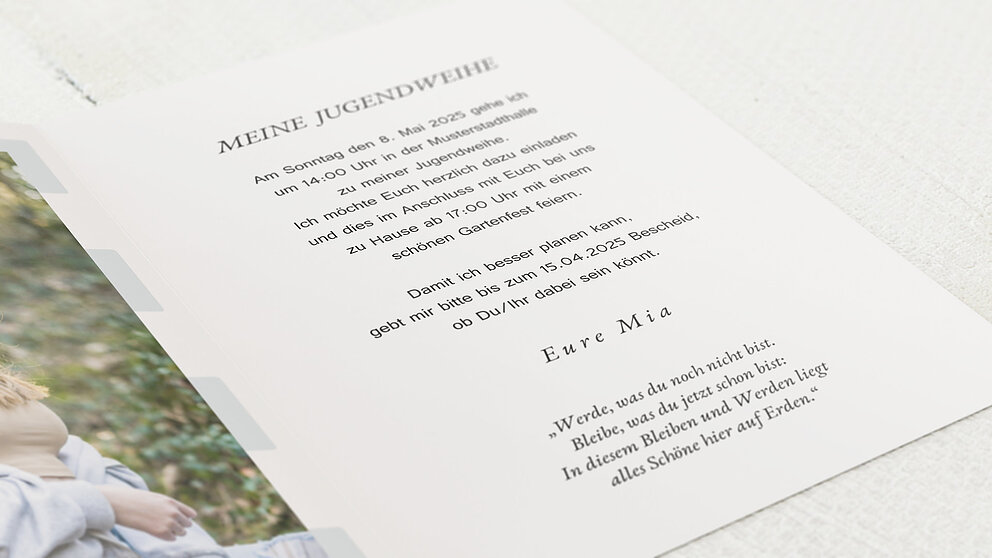 MEINE JUGENDWEIHE
Am Sonntag den 8. Mai 2025 gehe ich
um 14:00 Uhr in der Musterstadthalle
zu meiner Jugendweihe.
Ich möchte Euch herzlich dazu einladen
und dies im Anschluss mit Euch bei uns
zu Hause ab 17:00 Uhr mit einem
schönen Gartenfest feiern.
Damit ich besser planen kann,
gebt mir bitte bis zum 15.04.2025 Bescheid,
ob Du/Ihr dabei sein könnt.
Eure Mia
„Werde, was du noch nicht bist.
Bleibe, was du jetzt schon bist:
In diesem Bleiben und Werden liegt
alles Schöne hier auf Erden.“